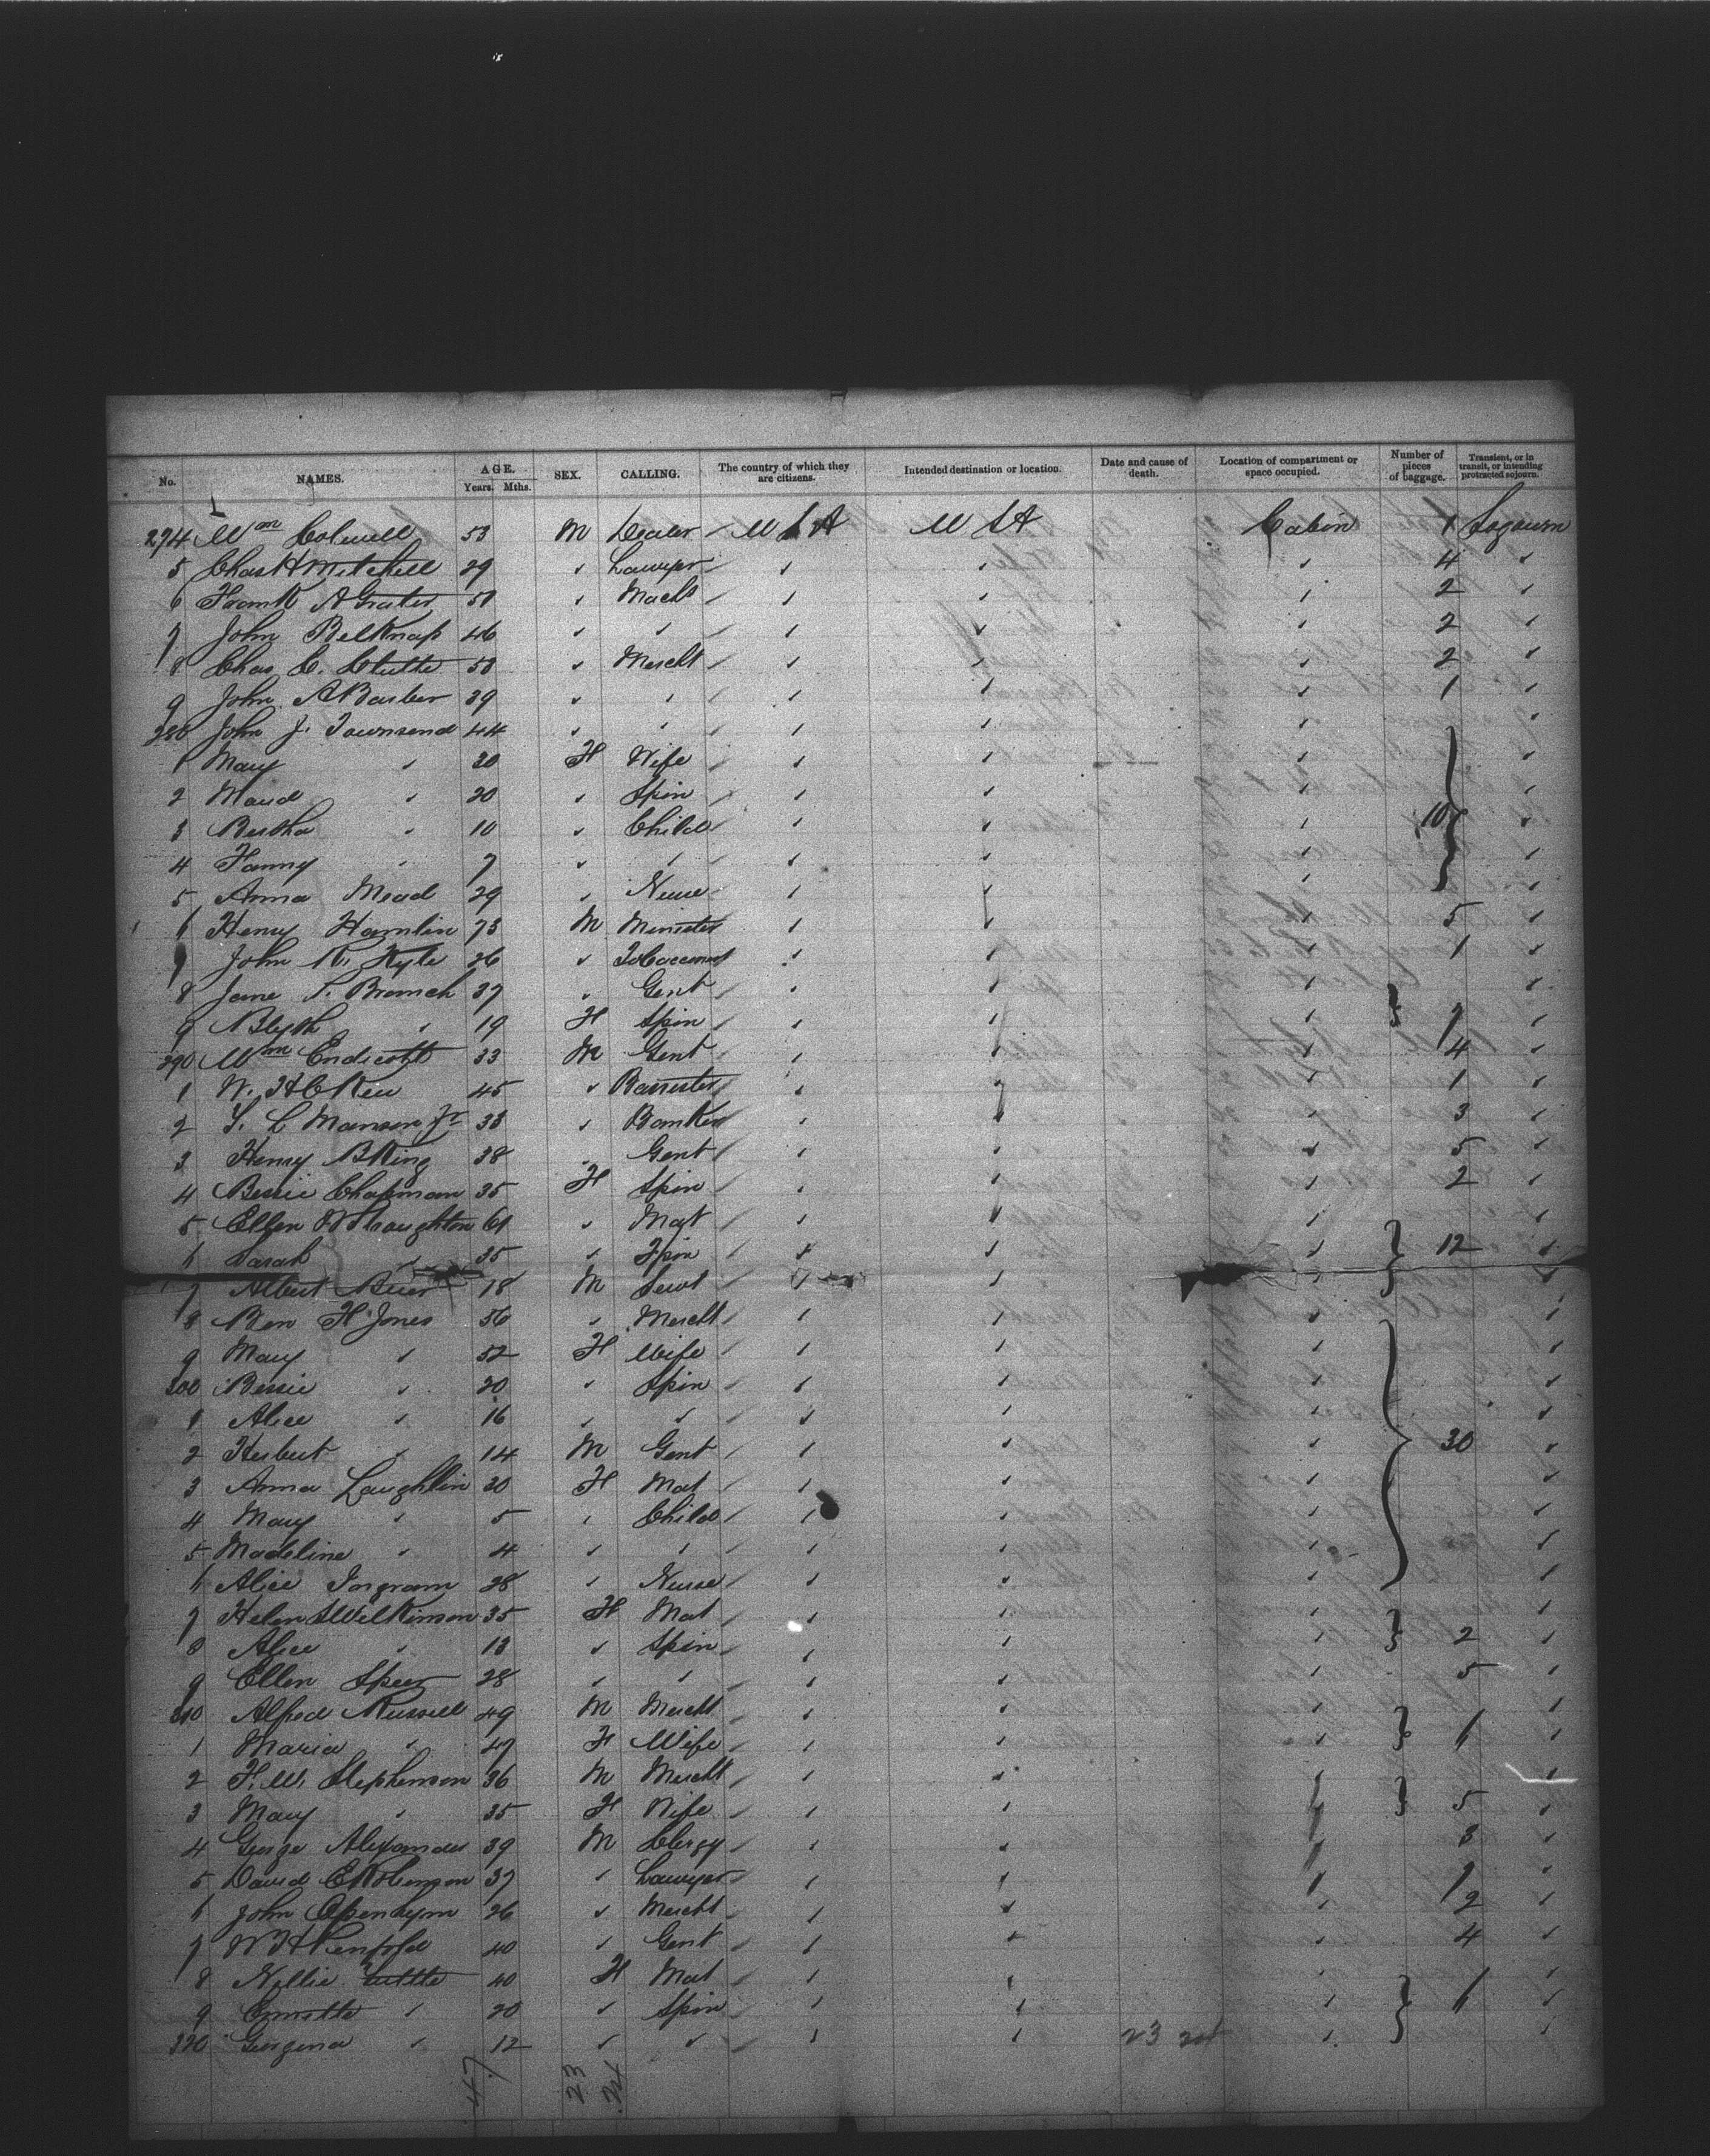 No. NAMES. AGE. Years. Mths. SEX. CALLING. The country of which they are citizens. Intended destination or location. Date and cause of death. Location of compartment or space occupied. Number of pieces of baggage. Transient, or in transit, or intending protracted sojourn.
274 Wm Colwell 53 M Dealer U S A U S A Cabin 1 Sojourn
5 Chas H Mitchell 29 ✓ Lawyer ✓ ✓ ✓ 4 ✓
6 Frank A 51 ✓ ✓ ✓ ✓ 2 ✓
7 John Belknap 46 ✓ ✓ ✓ ✓ ✓ 2 ✓
8 Chas C. 53 ✓ Mercht ✓ ✓ ✓ 2 ✓
9 John A Barber 39 ✓ ✓ ✓ ✓ ✓ 1 ✓
280 John J. Townsend 44 ✓ ✓ ✓ ✓ ✓ ✓
1 Mary ✓ 30 F Wife ✓ ✓ ✓ ✓
2 Maud ✓ 20 ✓ Spin ✓ ✓ ✓ ✓
3 Bertha ✓ 10 ✓ Child ✓ ✓ ✓ 10 ✓
4 Fanny ✓ 7 ✓ ✓ ✓ ✓ ✓ ✓
5 Anna Mead 29 ✓ Nurse ✓ ✓ ✓ ✓
6 Henry Hamlin 73 M Minister ✓ ✓ ✓ 5 ✓
7 John R. Kyle 26 ✓ ✓ ✓ ✓ 1 ✓
8 Jane S. Branch 37 ✓ Gent ✓ ✓ ✓ ✓
9 Blyth ✓ 19 F Spin ✓ ✓ ✓ 7 ✓
290 Wm Endicott 33 M Gent ✓ ✓ ✓ 4 ✓
1 W. H 45 ✓ Barrister ✓ ✓ ✓ 1 ✓
2 L Manson Jr 33 ✓ Banker ✓ ✓ ✓ 3 ✓
3 Henry B King 38 ✓ Gent ✓ ✓ ✓ 5 ✓
4 Bessie Chapman 35 F Spin ✓ ✓ ✓ 2 ✓
5 Ellen 61 ✓ Mat ✓ ✓ ✓ ✓
6 Sarah ✓ 35 ✓ Spin ✓ ✓ ✓ 12 ✓
7 Albert 18 M Servt ✓ ✓ ✓ ✓
8 Ben H Jones 56 ✓ Mercht ✓ ✓ ✓ ✓
9 Mary ✓ 52 F Wife ✓ ✓ ✓ ✓
300 Bessie ✓ 20 ✓ Spin ✓ ✓ ✓ ✓
1 Alice ✓ 16 ✓ ✓ ✓ ✓ ✓ ✓
2 Herbert ✓ 14 M Gent ✓ ✓ ✓ 30 ✓
3 Anna Laughlin 30 F Mat ✓ ✓ ✓ ✓
4 Mary ✓ 5 ✓ Child ✓ ✓ ✓ ✓
5 Madeline ✓ 4 ✓ ✓ ✓ ✓ ✓ ✓
6 Alice Ingram 28 ✓ Nurse ✓ ✓ ✓ ✓
7 Helen S Wilkinson 35 F Mat ✓ ✓ ✓ ✓
8 Alice ✓ 13 ✓ Spin ✓ ✓ ✓ 2 ✓
9 Ellen Speer 28 ✓ ✓ ✓ ✓ ✓ 5 ✓
310 Alfred Russell 49 M Mercht ✓ ✓ ✓ ✓
1 Maria ✓ 47 F Wife ✓ ✓ ✓ 6 ✓
2 F. W. Stephenson 36 M Mercht ✓ ✓ ✓ ✓
3 Mary ✓ 35 F Wife ✓ ✓ ✓ 5 ✓
4 George Alexander 39 M Clergy ✓ ✓ ✓ 3 ✓
5 David E Robinson 37 ✓ Lawyer ✓ ✓ ✓ 1 ✓
6 John Openhym 26 ✓ Mercht ✓ ✓ ✓ 2 ✓
7 W H Penfold 40 ✓ Gent ✓ ✓ ✓ 4 ✓
8 Nellie Tuttle 40 F Mat ✓ ✓ ✓ ✓
9 ✓ 20 ✓ Spin ✓ ✓ ✓ 6 ✓
320 Georgina ✓ 12 ✓ ✓ ✓ ✓ 23 24 ✓ ✓
47 23 24